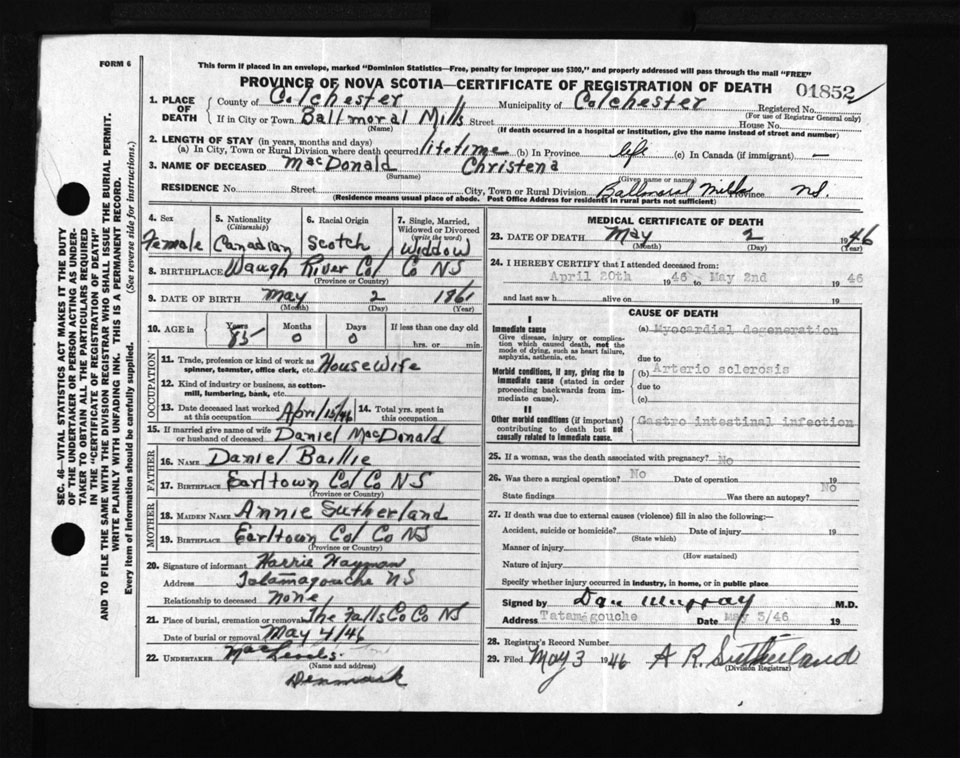 FORM 6
This form if placed in an envelope, marked "Dominion Statistics—Free, penalty for improper use $300," and properly addressed will pass through the mail "FREE"
PROVINCE OF NOVA SCOTIA—CERTIFICATE OF REGISTRATION OF DEATH
01852
SEC. 46—VITAL STATISTICS ACT MAKES IT THE DUTY
OF THE UNDERTAKER OR PERSON ACTING AS UNDER-
TAKER TO OBTAIN ALL THE PARTICULARS REQUIRED
IN THE "CERTIFICATE OF REGISTRATION OF DEATH"
AND TO FILE THE SAME WITH THE DIVISION REGISTRAR WHO SHALL ISSUE THE BURIAL PERMIT.
WRITE PLAINLY WITH UNFADING INK. THIS IS A PERMANENT RECORD.
Every item of information should be carefully supplied. (See reverse side for instructions.)
1. PLACE OF DEATH
County of Colchester Municipality of Colchester Registered No.
(For use of Registrar General only)
If in City or Town Baltmoral Mills Street House No.
(Name) (If death occurred in a hospital or institution, give the name instead of street and number)
2. LENGTH OF STAY (in years, months and days)
(a) In City, Town or Rural Division where death occurred lifetime (b) In Province life (c) In Canada (if immigrant) —
3. NAME OF DECEASED MacDonald Christena
(Surname) (Given name or names)
RESIDENCE No Street City, Town or Rural Division Ballmoral Mills Province NS.
(Residence means usual place of abode. Post Office Address for residents in rural parts not sufficient)
4. Sex Female
5. Nationality (Citizenship) Canadian
6. Racial Origin Scotch
7. Single, Married, Widowed or Divorced (write the word) Widdow
8. BIRTHPLACE Waugh River Col Co NS
(Province or Country)
9. DATE OF BIRTH May 2 1861
(Month) (Day) (Year)
10. AGE in Years 85 Months 0 Days 0 If less than one day old
hrs. or min.
OCCUPATION
11. Trade, profession or kind of work as spinner, teamster, office clerk, etc. HouseWife
12. Kind of industry or business, as cotton-mill, lumbering, bank, etc.
13. Date deceased last worked at this occupation April/15/46
14. Total yrs. spent in this occupation
15. If married give name of wife or husband of deceased Daniel MacDonald
FATHER
16. NAME Daniel Baillie
17. BIRTHPLACE Earltown Col Co NS
(Province or Country)
MOTHER
18. MAIDEN NAME Annie Sutherland
19. BIRTHPLACE Earltown Col Co NS
(Province or Country)
20. Signature of informant Harrie Hayman
Address Tatamagouche NS
Relationship to deceased none
21. Place of burial, cremation or removal The Falls Co Co NS
Date of burial or removal May 4/46
22. UNDERTAKER
(Name and address)
Denmark
MEDICAL CERTIFICATE OF DEATH
23. DATE OF DEATH May 2 1946
(Month) (Day) (Year)
24. I HEREBY CERTIFY that I attended deceased from:
April 20th 19 46 to May 2nd 19 46
and last saw h alive on 19
CAUSE OF DEATH
I
Immediate cause
Give disease, injury or complication which caused death, not the mode of dying, such as heart failure, asphyxia, asthenia, etc.
(a) Myocardial degeneration
due to
Morbid conditions, if any, giving rise to immediate cause (stated in order proceeding backwards from immediate cause).
(b) Arterio sclerosis
due to
(c)
II
Other morbid conditions (if important) contributing to death but not causally related to immediate cause.
Gastro intestinal infection
25. If a woman, was the death associated with pregnancy? No
26. Was there a surgical operation? No Date of operation 19
State findings Was there an autopsy? No
27. If death was due to external causes (violence) fill in also the following:—
Accident, suicide or homicide? Date of injury 19
(State which)
Manner of injury
(How sustained)
Nature of injury
Specify whether injury occurred in industry, in home, or in public place
Signed by Dan Murray M.D.
Address Tatamagouche Date May 3/46 19
28. Registrar's Record Number
29. Filed May 3 1946 A R. Sutherland
(Division Registrar)